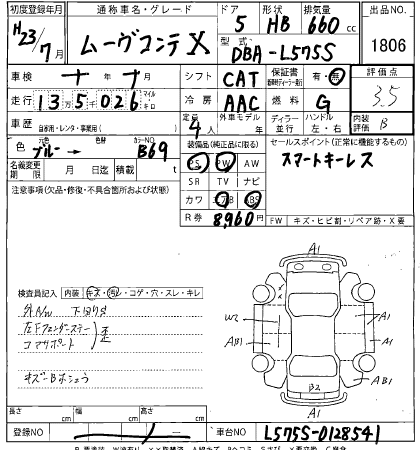 初度登録年月 通称車名・グレード ドア 形状 排気量 出品NO.
H23/7月 ムーヴコンテ X 5 HB 660cc 1806
型式 DBA-L575S
車検 十年十月 シフト CAT 保証書 有・無 評価点
走行 13万5千026 マイル キロ 冷房 AAC 燃料 G 3.5
車歴 自家用・レンタ・事業用( ) 定員 4人 外車モデル 年 ディーラー 並行 ハンドル 左・右 内装評価 B
色 元色 ブルー→ 色替 カラーNO B69 装備品(純正品に限る) セールスポイント(正常に機能するもの)
PS PW AW スマートキーレス
名義変更期限 月 日迄 積載量 t SR TV ナビ
注意事項(欠品・修復・不具合箇所および状態) カワ エアB ABS
R券 8,960円 FW キズ・ヒビ割・リペア跡・X要
A1
検査員記入 内装 キズ・汚レ・コゲ・穴・スレ・キレ
外N/W 下回りS
左Fフェンダーステー
コアサポート 歪
キズーBホショウ
W2 A1
AB1 A1
B2 AB1
A1
長さ cm 幅 cm 高さ cm
登録NO 車台NO L575S-0128541